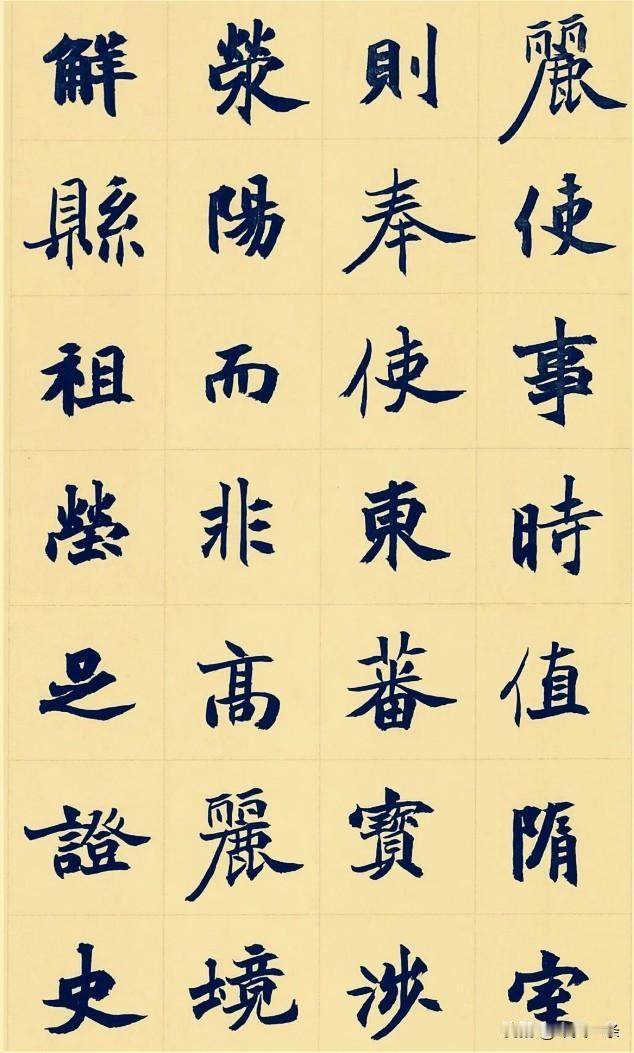 麗使事時值隋室
則奉使東蕃寶涉
滎陽而非高麗境
解縣祖塋足證史